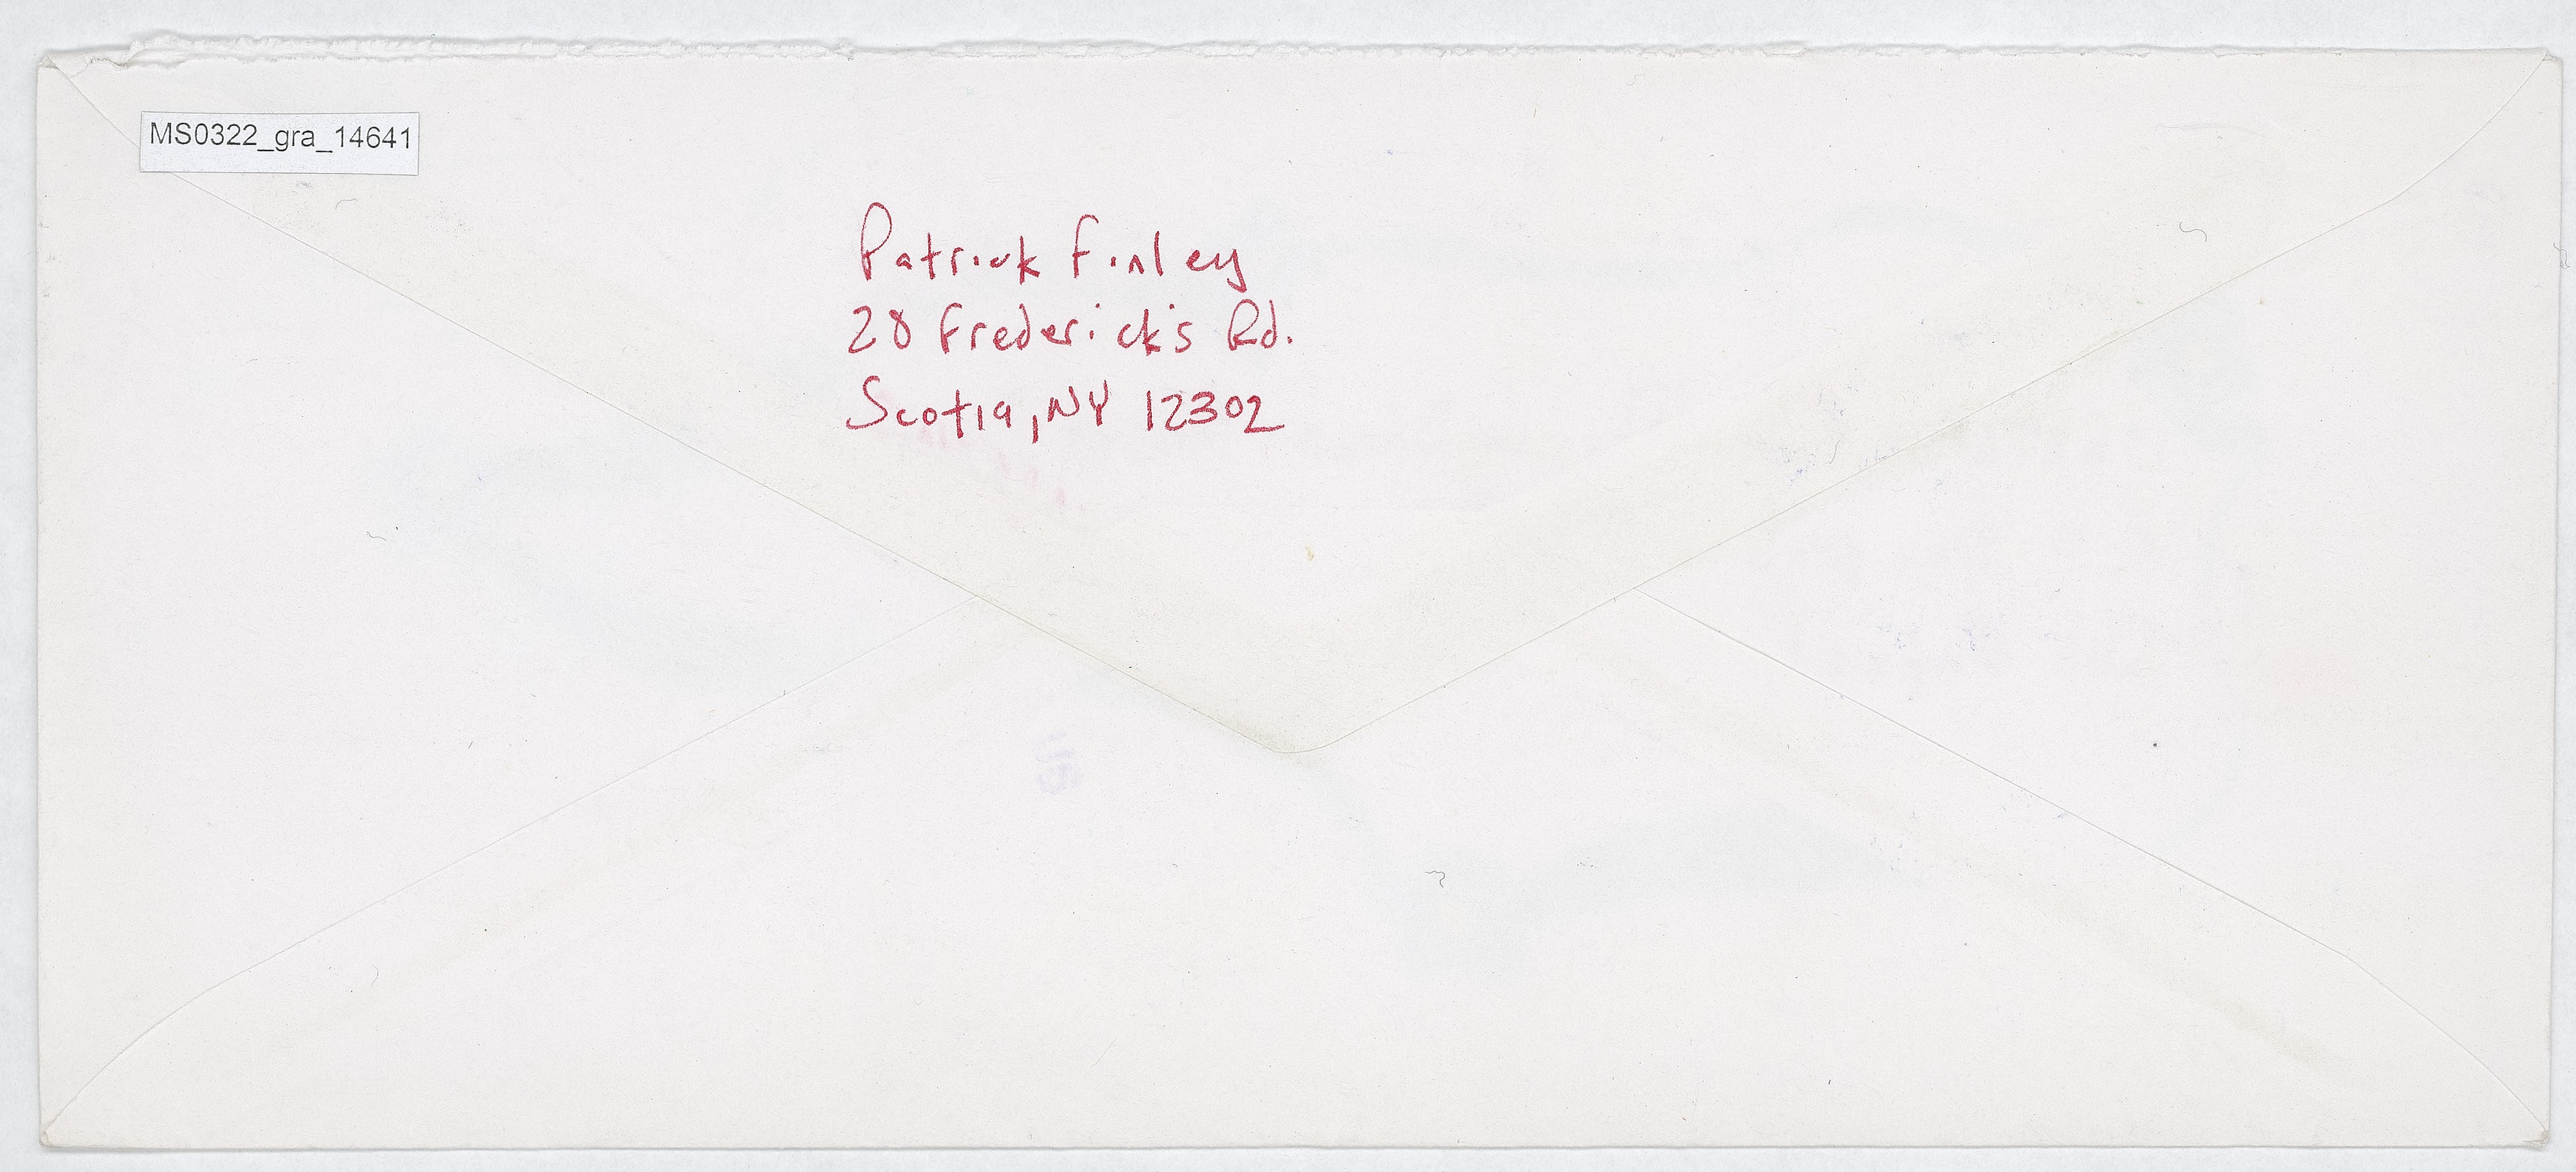 MS0322_gra_14641
Patrick Finley
28 Frederick's Rd.
Scotia, NY 12302